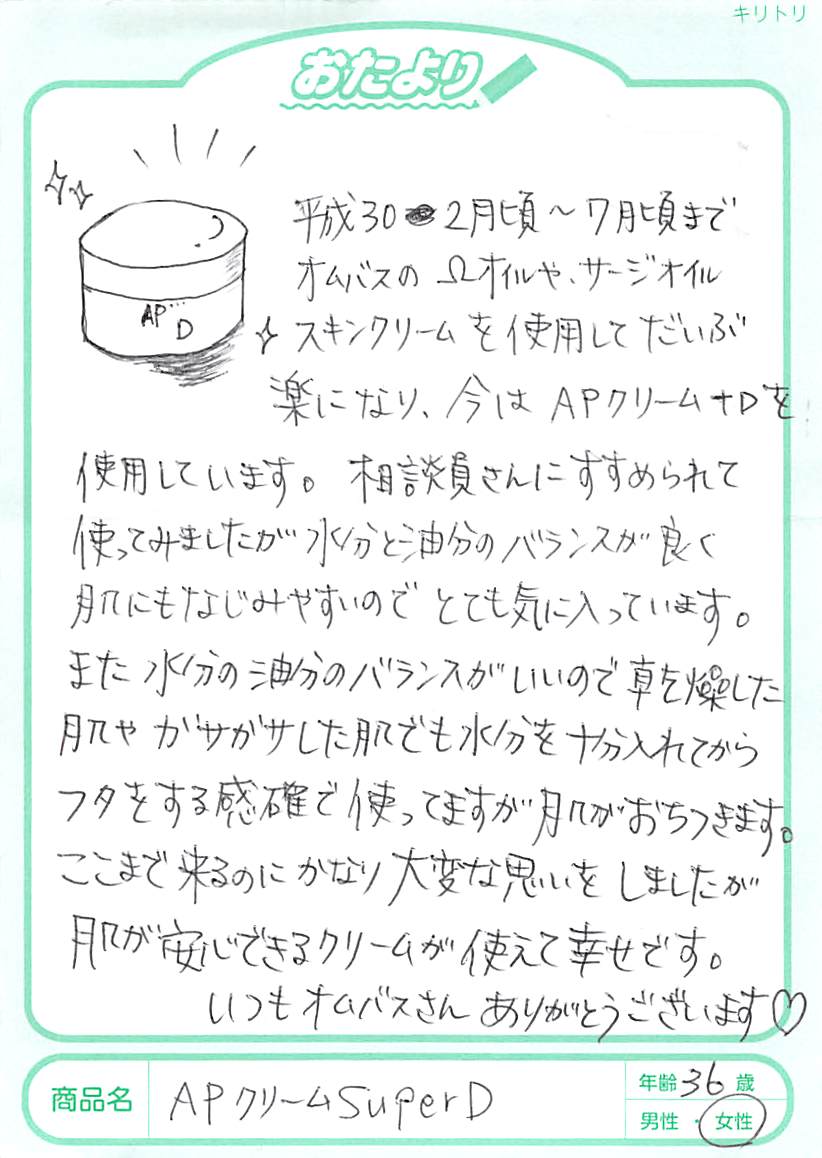 キリトリ
おたより
平成30 2月頃〜7月頃まで
オムバスの Ωオイルや、サージオイル
スキンクリームを使用して だいぶ
楽になり、今は APクリーム+Dを
AP
D
使用しています。相談員さんにすすめられて
使ってみましたが 水分と油分のバランスが良く
肌にもなじみやすいので とても気に入っています。
また 水分の油分のバランスがいいので 乾燥した
肌や ガサガサした肌でも水分を十分入れてから
フタをする感確で使ってますが 肌がおちつきます。
ここまで来るのに かなり大変な思いをしましたが
肌が安心できるクリームが使えて幸せです。
いつもオムバスさん ありがとうございます♡
商品名 APクリームSuperD
年齢 36 歳
男性・女性